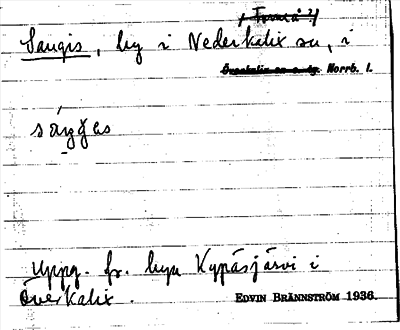 Sangis, by i Nederkalix sn, i
Norrb. l.
Uppg. fr. byn Kypäsjärvi i
Överkalix.
EDVIN BRÄNNSTRÖM 1936.